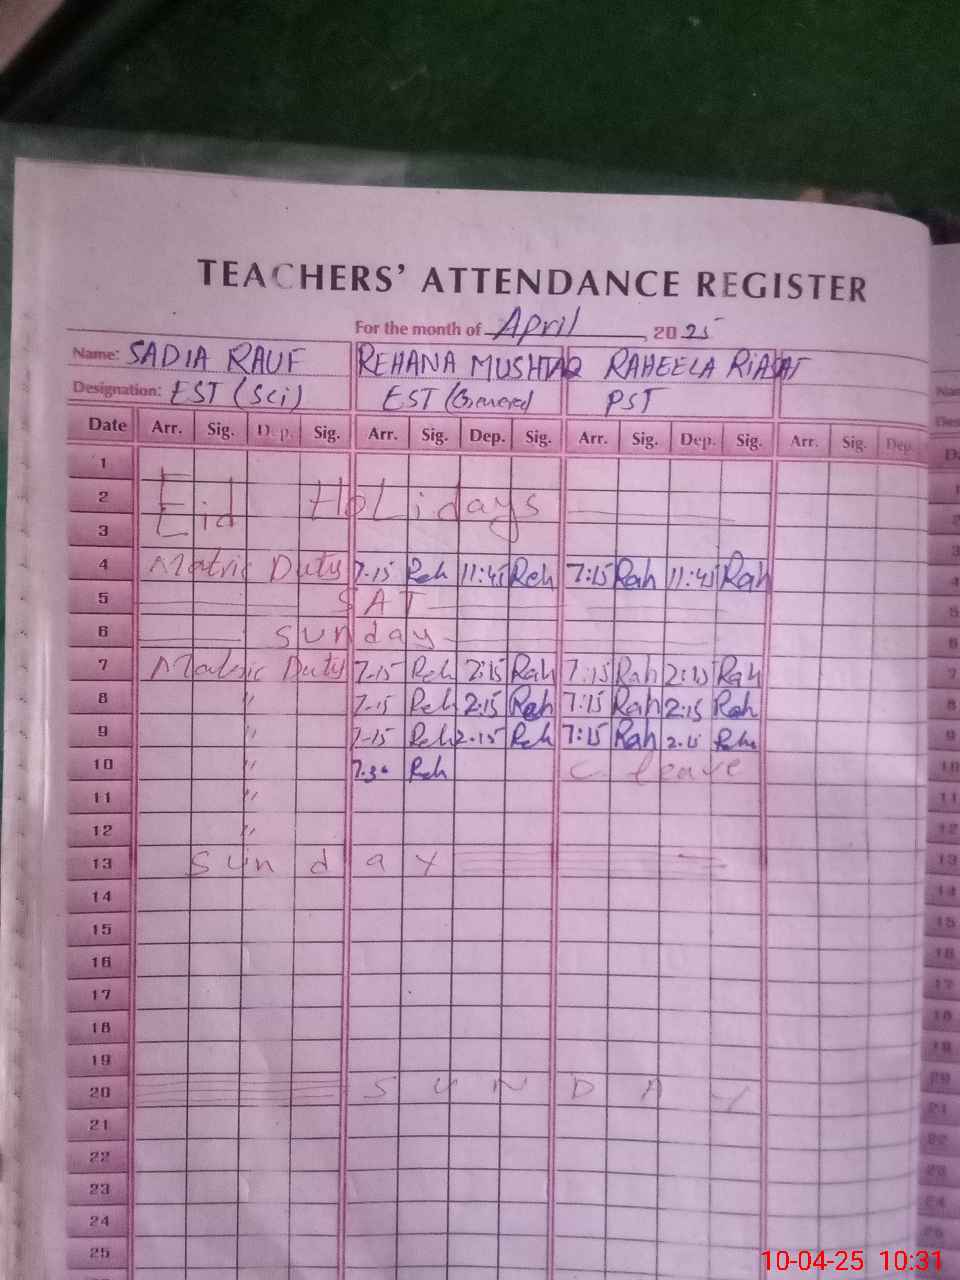 TEACHERS' ATTENDANCE REGISTER
For the month of April, 2025
Name: SADIA RAUF REHANA MUSHTAQ RAHEELA RIASAT
Designation: EST (Sci) EST (General) PST
Date Arr. Sig. Dep. Sig. Arr. Sig. Dep. Sig. Arr. Sig. Dep. Sig. Arr. Sig. Dep
1
2 Eid Holidays
3
4 Matric Duty 7-15 Reh 11:45 Reh 7:15 Rah 11:45 Rah
5 SAT
6 Sunday
7 Matric Duty 7-15 Reh 2:15 Rah 7:15 Rah 2:15 Rah
8 " 7-15 Reh 2:15 Reh 7:15 Rah 2:15 Rah
9 " 7-15 Reh 2-15 Reh 7:15 Rah 2-15
10 " 7.30 Reh C. leave
11 "
12 "
13 Sunday
14
15
16
17
18
19
20 SUNDAY
21
22
23
24
25
10-04-25 10:31